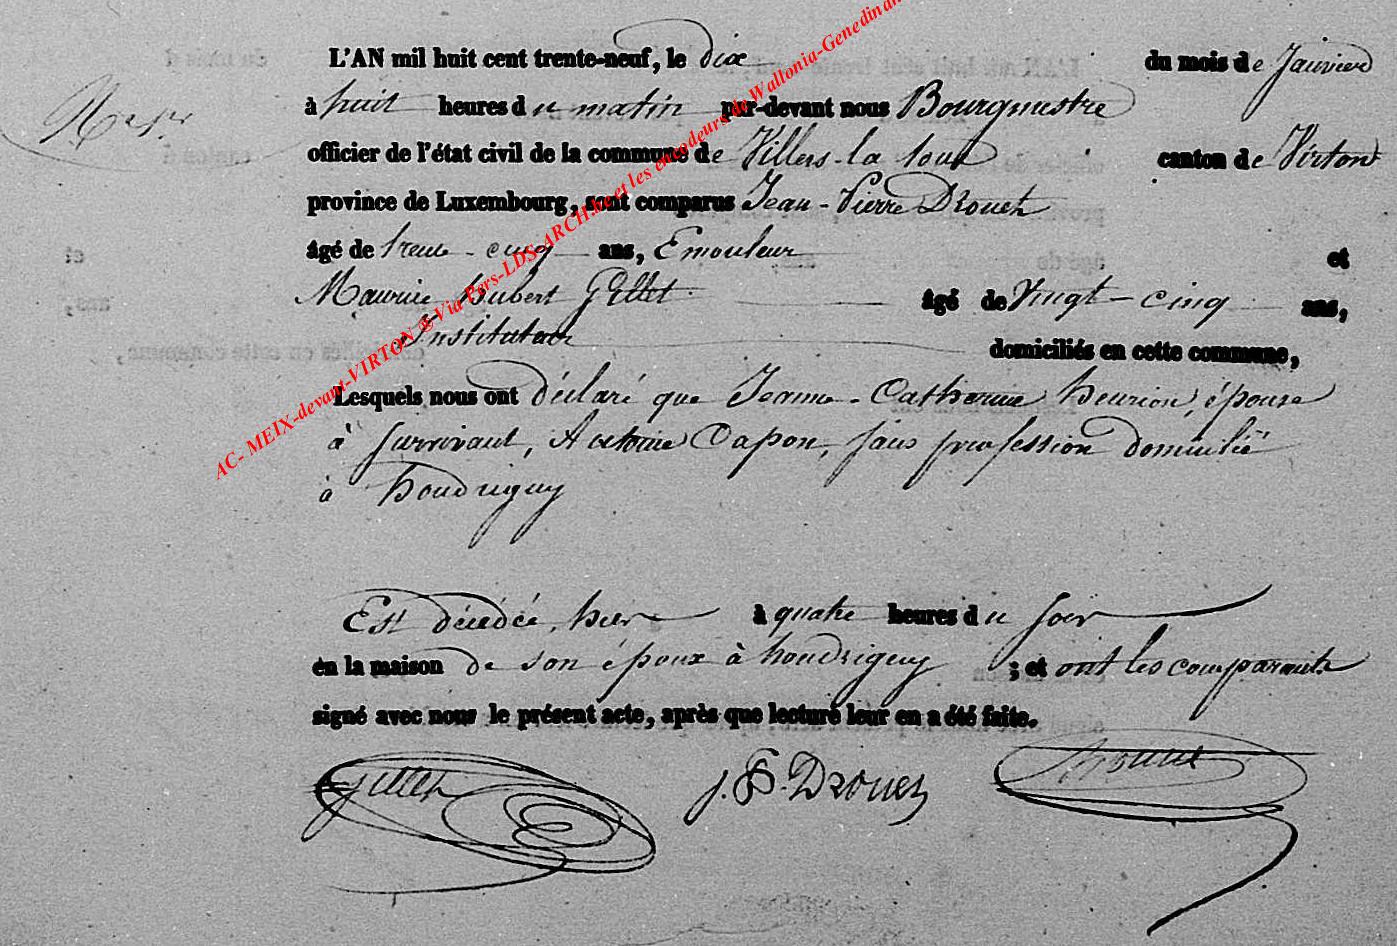 L'AN mil huit cent trente-neuf, le dix du mois de Janvier
à huit heures du matin par-devant nous Bourgmestre
officier de l'état civil de la commune de Villers-la-Loue canton de Virton
province de Luxembourg, sont comparus Jean-Pierre Drouet
âgé de trente-cinq ans, Emouleur et
Maurice Hubert Gillet âgé de vingt-cinq ans,
Instituteur domiciliés en cette commune,
Lesquels nous ont déclaré que Jeanne-Catherine henrion, épouse
à survivant, Antoine Capon, sans profession domicilié
à houdrigny
Est décédée, hier à quatre heures du soir
en la maison de son époux à houdrigny ; et ont les comparants
signé avec nous le présent acte, après que lecture leur en a été faite.
Gillet J. P. Drouet
AC- MEIX-devant-VIRTON ® Via Pers-LDS-ARCH.be et les encodeurs de Wallonia-Genedinan